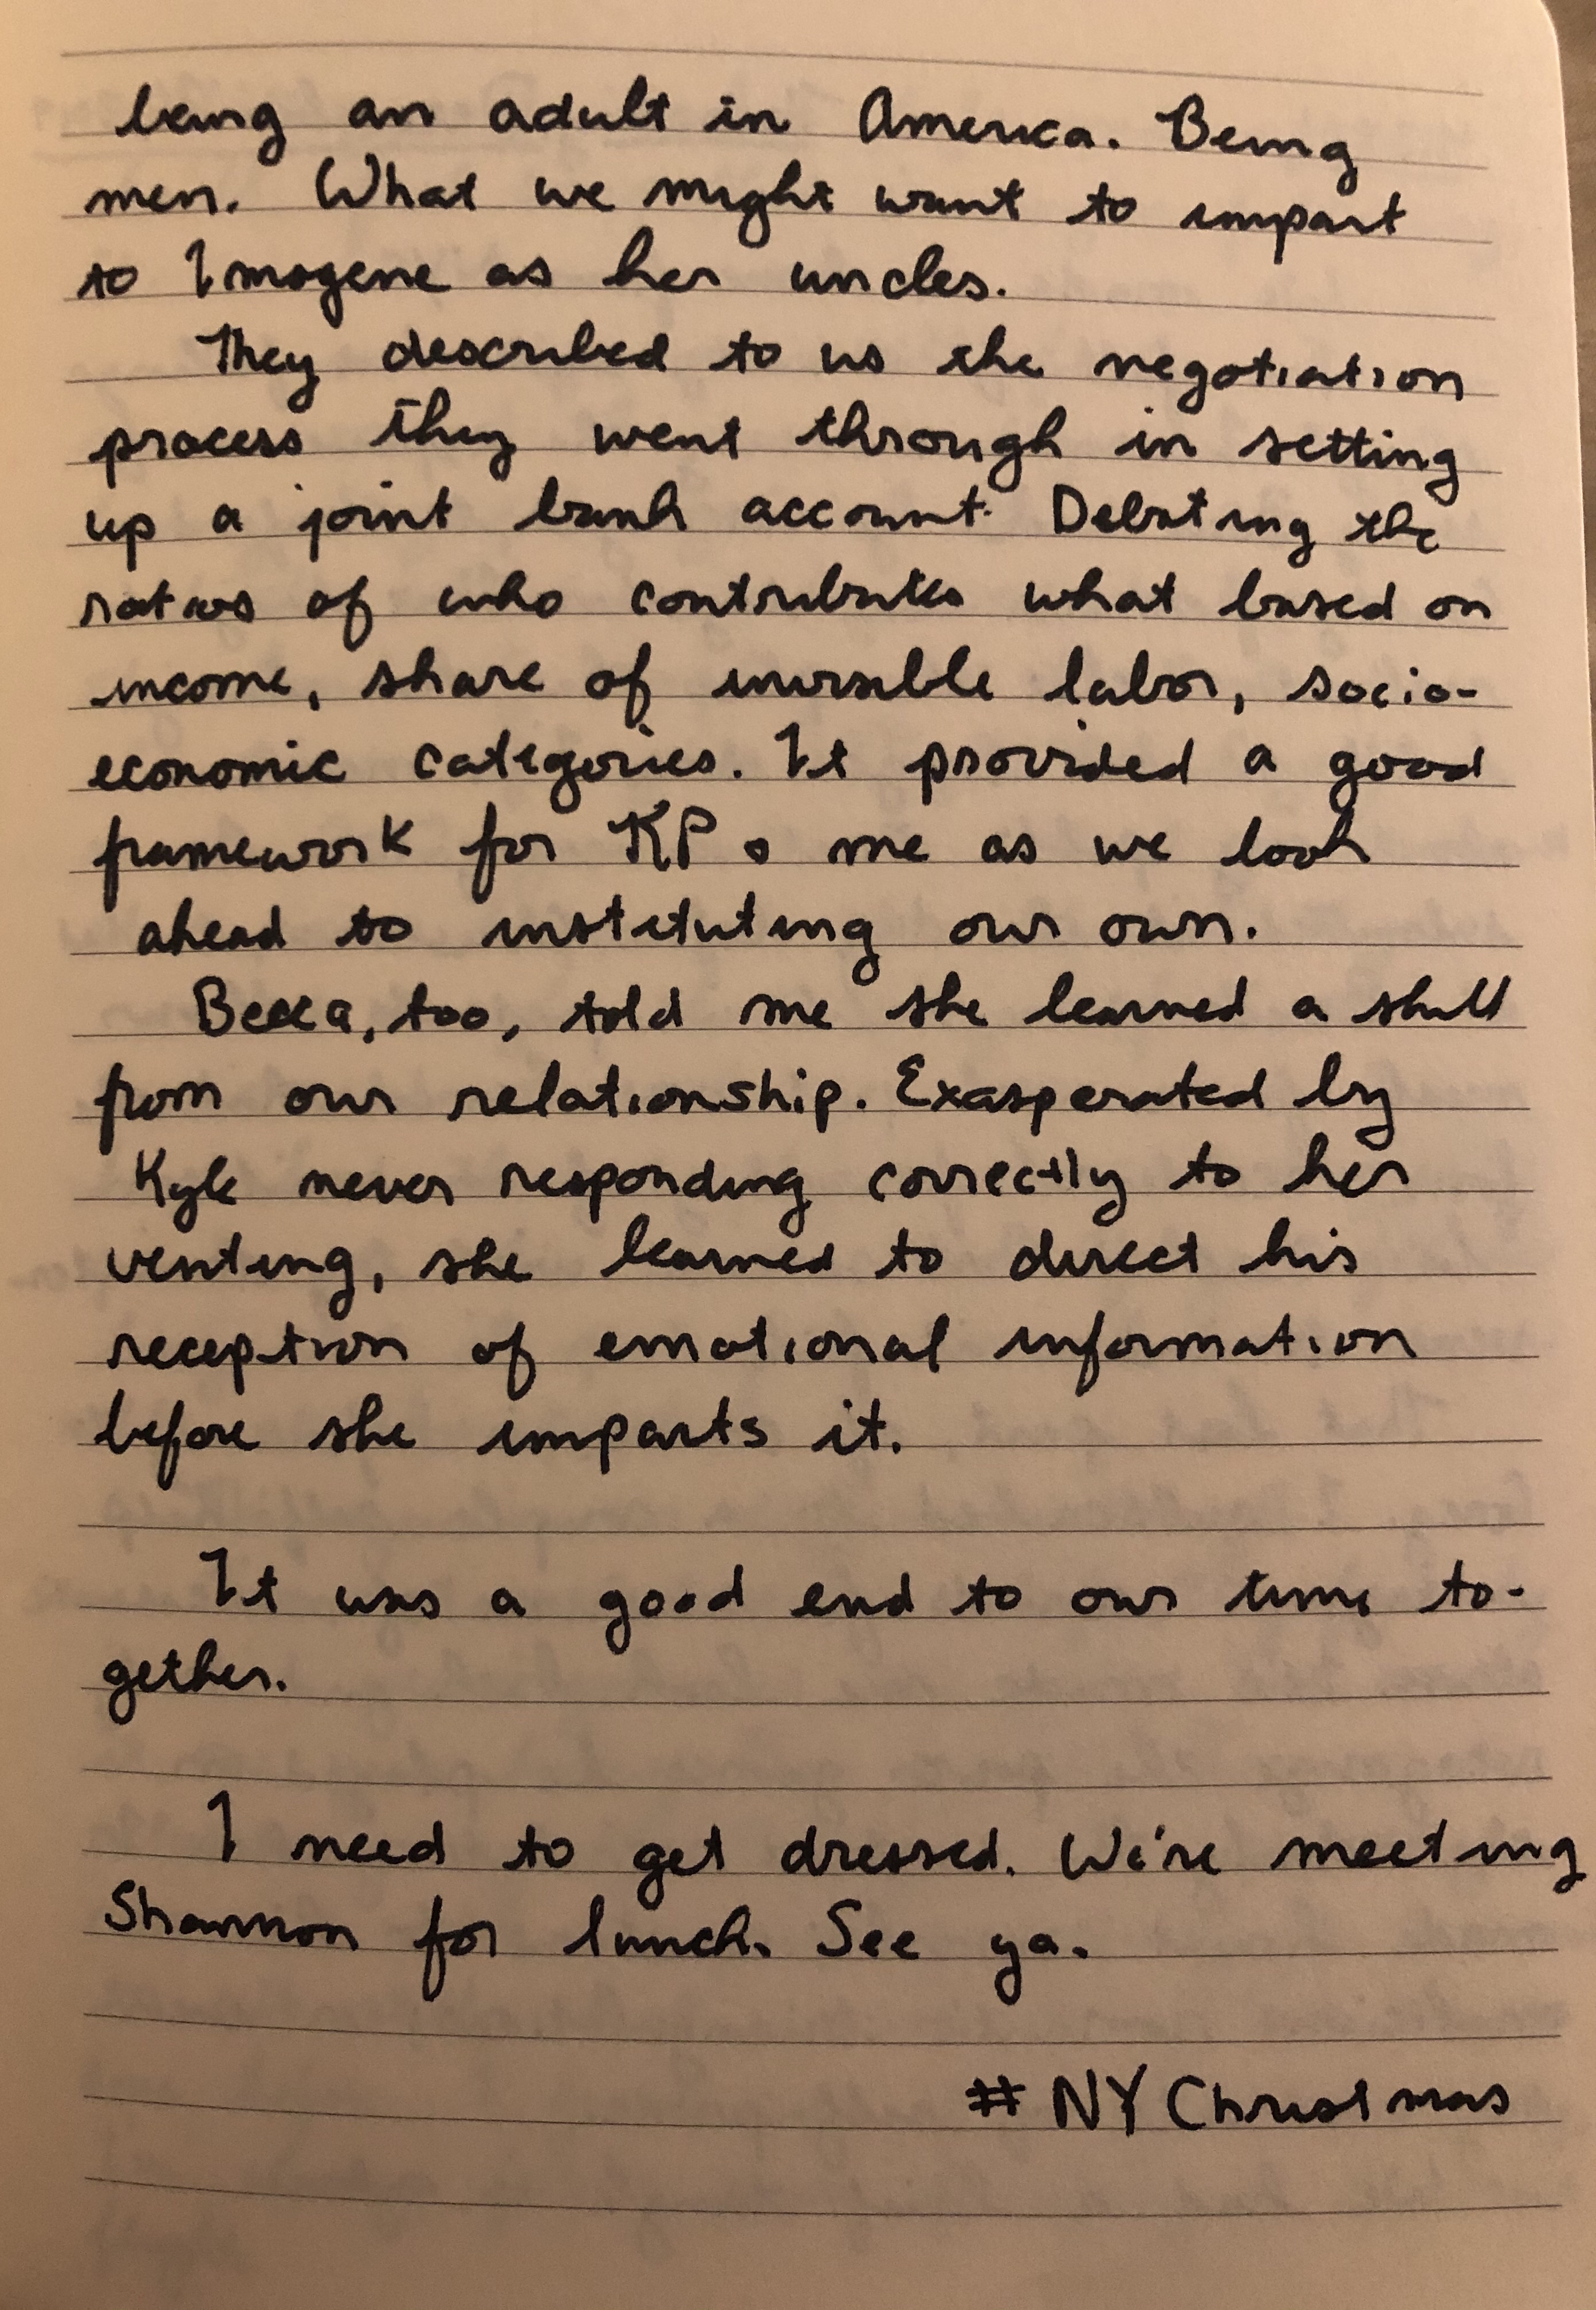 being an adult in America. Being
men. What we might want to impart
to Imogene as her uncles.
They described to us the negotiation
process they went through in setting
up a joint bank account. Debating the
ratios of who contributes what based on
income, share of invisible labor, socio-
economic categories. It provided a good
framework for KP & me as we look
ahead to instituting our own.
Becca, too, told me she learned a skill
from our relationship. Exasperated by
Kyle never responding correctly to her
venting, she learned to direct his
reception of emotional information
before she imparts it.
It was a good end to our time to-
gether.
I need to get dressed. We're meeting
Shannon for lunch. See ya.
# NY Christmas